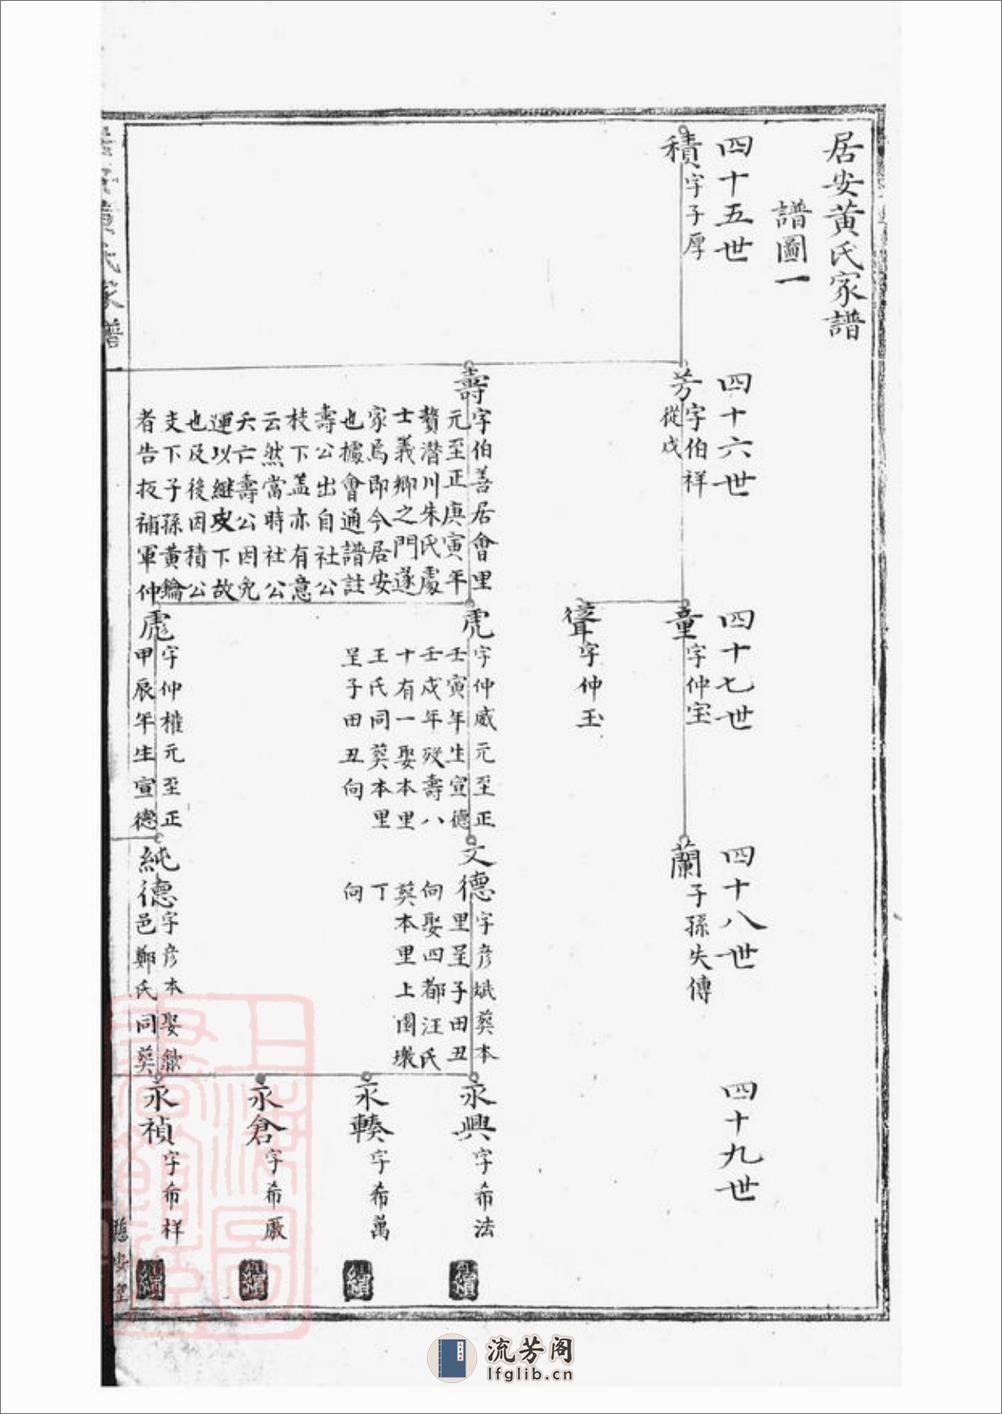 居安黄氏家譜
譜圖一
四十五世
四十六世
四十七世
四十八世
四十九世
積
字子厚
芳
字伯祥
從戍
童
字仲宝
蘭
子孫失傳
字仲玉
壽
字伯善居會里
元至正庚寅年
贅潛川朱氏處
士義卿之門遂
家焉即今居安
也據會通譜註
壽公出自社公
枝下盖亦有意
云然當時社公
夭亡壽公因免
運以継支下故
也及後因積公
支下子孫黄鑰
者告扳補軍仲
虎
字仲威元至正
壬寅年生宣德
壬戍年殁壽八
十有一娶本里
王氏同葬本里
呈子田丑向
文德
字彦斌葬本
里呈子田丑
向娶四都汪氏
葬本里上園墩
丁
向
永興
字希法
績
永轃
字希萬
績
永倉
字希厫
績
彪
字仲權元至正
甲辰年生宣德
純德
字彦本娶歙
邑鄭氏同葬
永禎
字希祥
績
居安黄氏家譜
上海圖書館藏
流芳阁
lfglib.cn